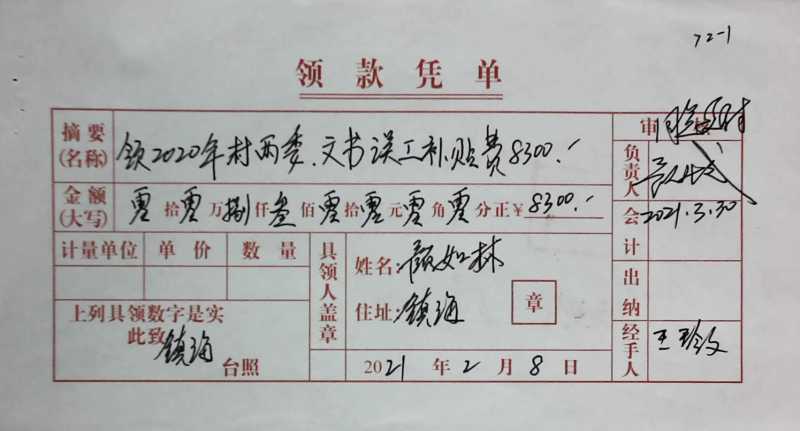 72-1
领款凭单
摘要(名称) 领2020年村两委、文书误工补贴费8300.-
审
负责人
金额(大写) 零拾零万捌仟叁佰零拾零元零角零分正¥8300.-
会计 2021.3.30
计量单位 单价 数量
具领人盖章
姓名:颜如林
住址:镇海
章
上列具领数字是实
此致 镇海 台照
2021年2月8日
出纳
经手人 王